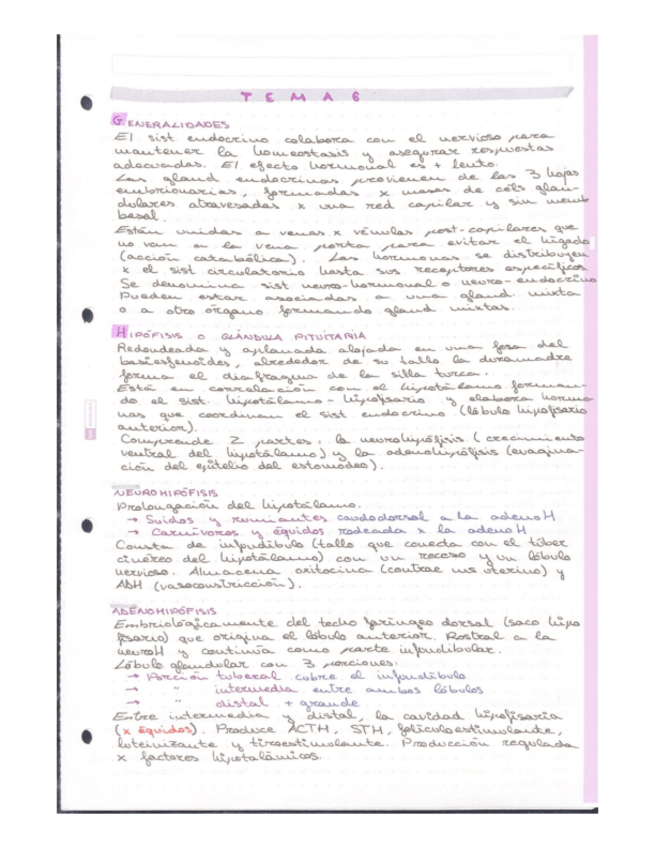 TEMA 6
GENERALIDADES
El sist endocrino colabora con el nervioso para
mantener la homeostasis y asegurar respuestas
adecuadas. El efecto hormonal es + lento.
Las gland endocrinas provienen de las 3 hojas
embrionarias, formadas x masas de cels glan-
dulares atravesadas x una red capilar y sin memb
basal.
Están unidas a venas x vénulas post-capilares que
no van a la vena porta para evitar el hígado
(acción catabólica). Las hormonas se distribuyen
x el sist circulatorio hasta sus receptores específicos
Se denomina sist neuro-hormonal o neuro-endocrino
Pueden estar asociadas a una gland mixta
o a otro órgano formando gland mixtas.
HIPÓFISIS O GLÁNDULA PITUITARIA
Redondeada y aplanada alojada en una fosa del
basiesfenoides, alrededor de su tallo la duramadre
forma el diafragma de la silla turca.
Está en correlación con el hipotálamo forman-
do el sist. hipotálamo-hipofisario y elabora hormo-
nas que coordinan el sist endocrino (lóbulo hipofisario
anterior).
Comprende 2 partes: la neurohipófisis (crecimiento
ventral del hipotálamo) y la adenohipófisis (evagina-
ción del epitelio del estomodeo).
NEUROHIPÓFISIS
Prolongación del hipotálamo.
→ Suidos y rumiantes caudodorsal a la adenoH
→ Carnívoros y équidos rodeada x la adenoH
Consta de infundíbulo (tallo que conecta con el túber
cinéreo del hipotálamo) con un receso y un lóbulo
nervioso. Almacena oxitocina (contrae ms uterino) y
ADH (vasoconstricción).
ADENOHIPÓFISIS
Embriológicamente del techo faríngeo dorsal (saco hipo
fisario) que origina el lóbulo anterior. Rostral a la
neuroH y continúa como parte infundibular.
Lóbulo glandular con 3 porciones:
→ Porción tuberal cubre el infundíbulo
→ " intermedia entre ambos lóbulos
→ " distal + grande
Entre intermedia y distal, la cavidad hipofisaria
(x équidos). Produce ACTH, STH, foliculoestimulante,
luteinizante y tiroestimulante. Producción regulada
x factores hipotalámicos.